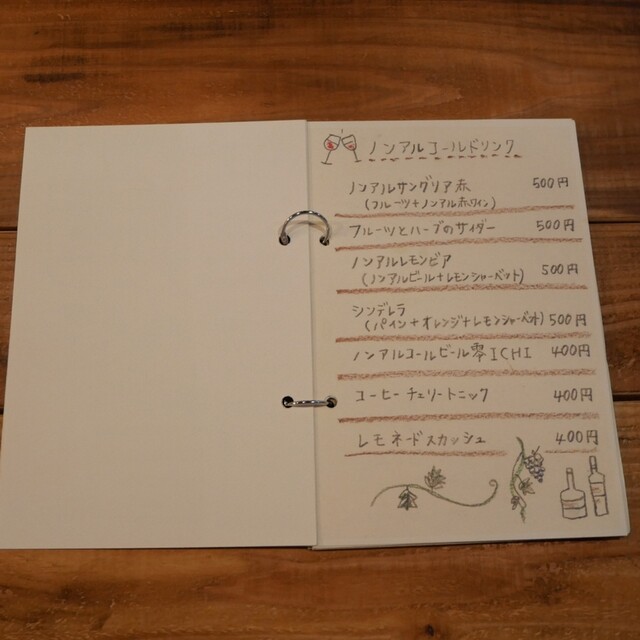 ノンアルコールドリンク
ノンアルサングリア赤 500円
(フルーツ+ノンアル赤ワイン)
フルーツとハーブのサイダー 500円
ノンアルレモンビア
(ノンアルビール+レモンシャーベット) 500円
シンデレラ
(パイン+オレンジ+レモンシャーベット) 500円
ノンアルコールビール零ICHI 400円
コーヒーチェリートニック 400円
レモネードスカッシュ 400円